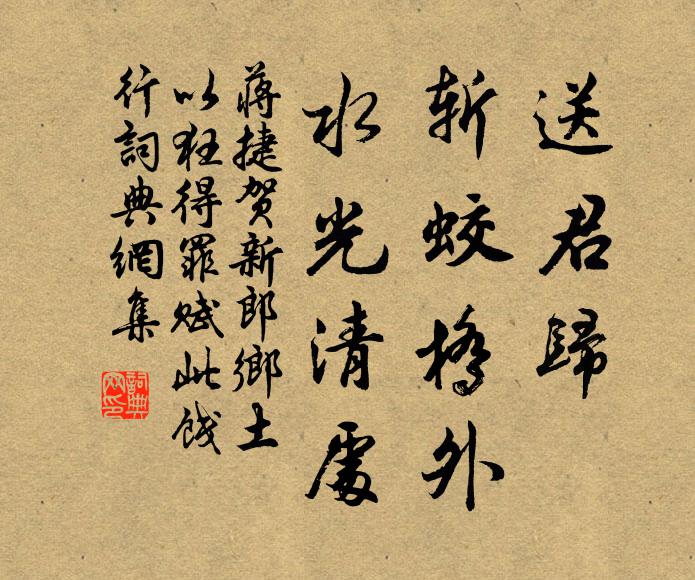 送君歸
斬蛟橋外
水光清處
蔣捷賀新郎鄉土
以狂得罪賦此餞
行詞典網集
詞典
網印